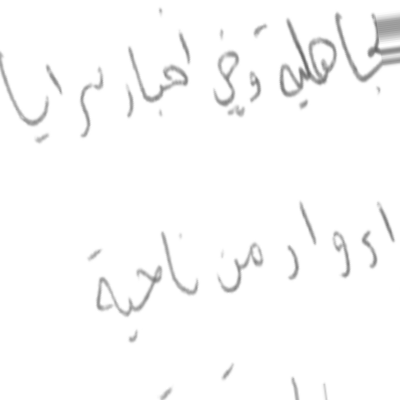 جاهلية وفي اخبار سرايا
ادوار من ناحية